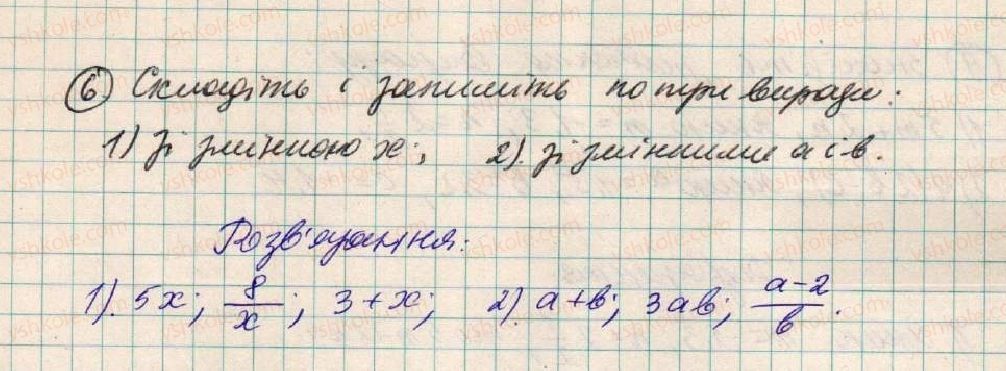 6 Складіть і запишіть по три вирази:
1) зі змінною x; 2). зі змінними a і b.
Розв'язання:
1). 5x; 8/x; 3+x; 2). a+b; 3ab; (a-2)/b.